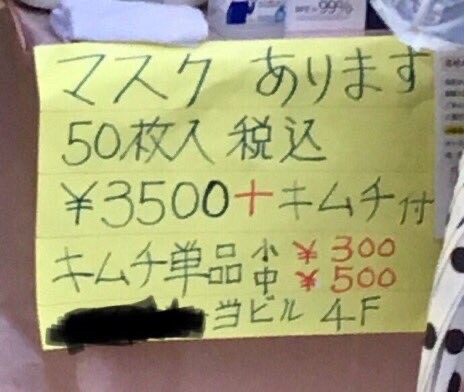 マスク あります
50枚入 税込
￥3500＋キムチ付
キムチ単品 小 ￥300
中 ￥500
当ビル 4F
99%